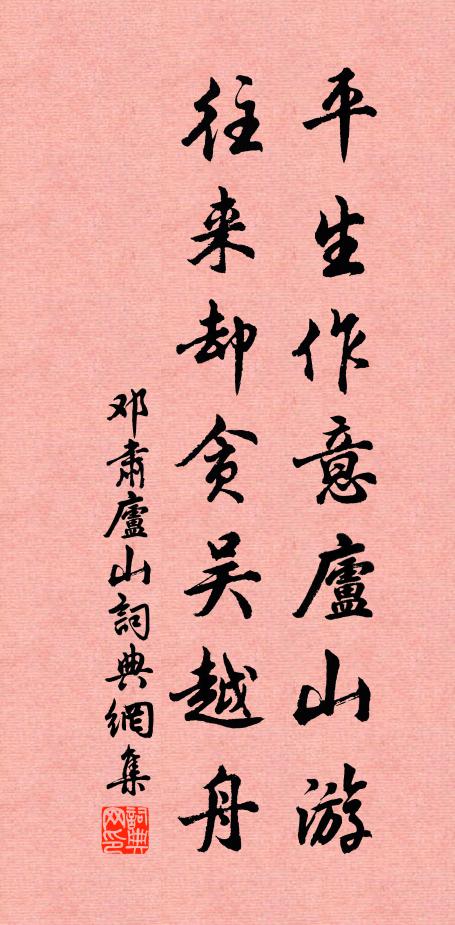 平生作意廬山游
往来却贪吴越舟
邓肅廬山詞典網集
詞典网印